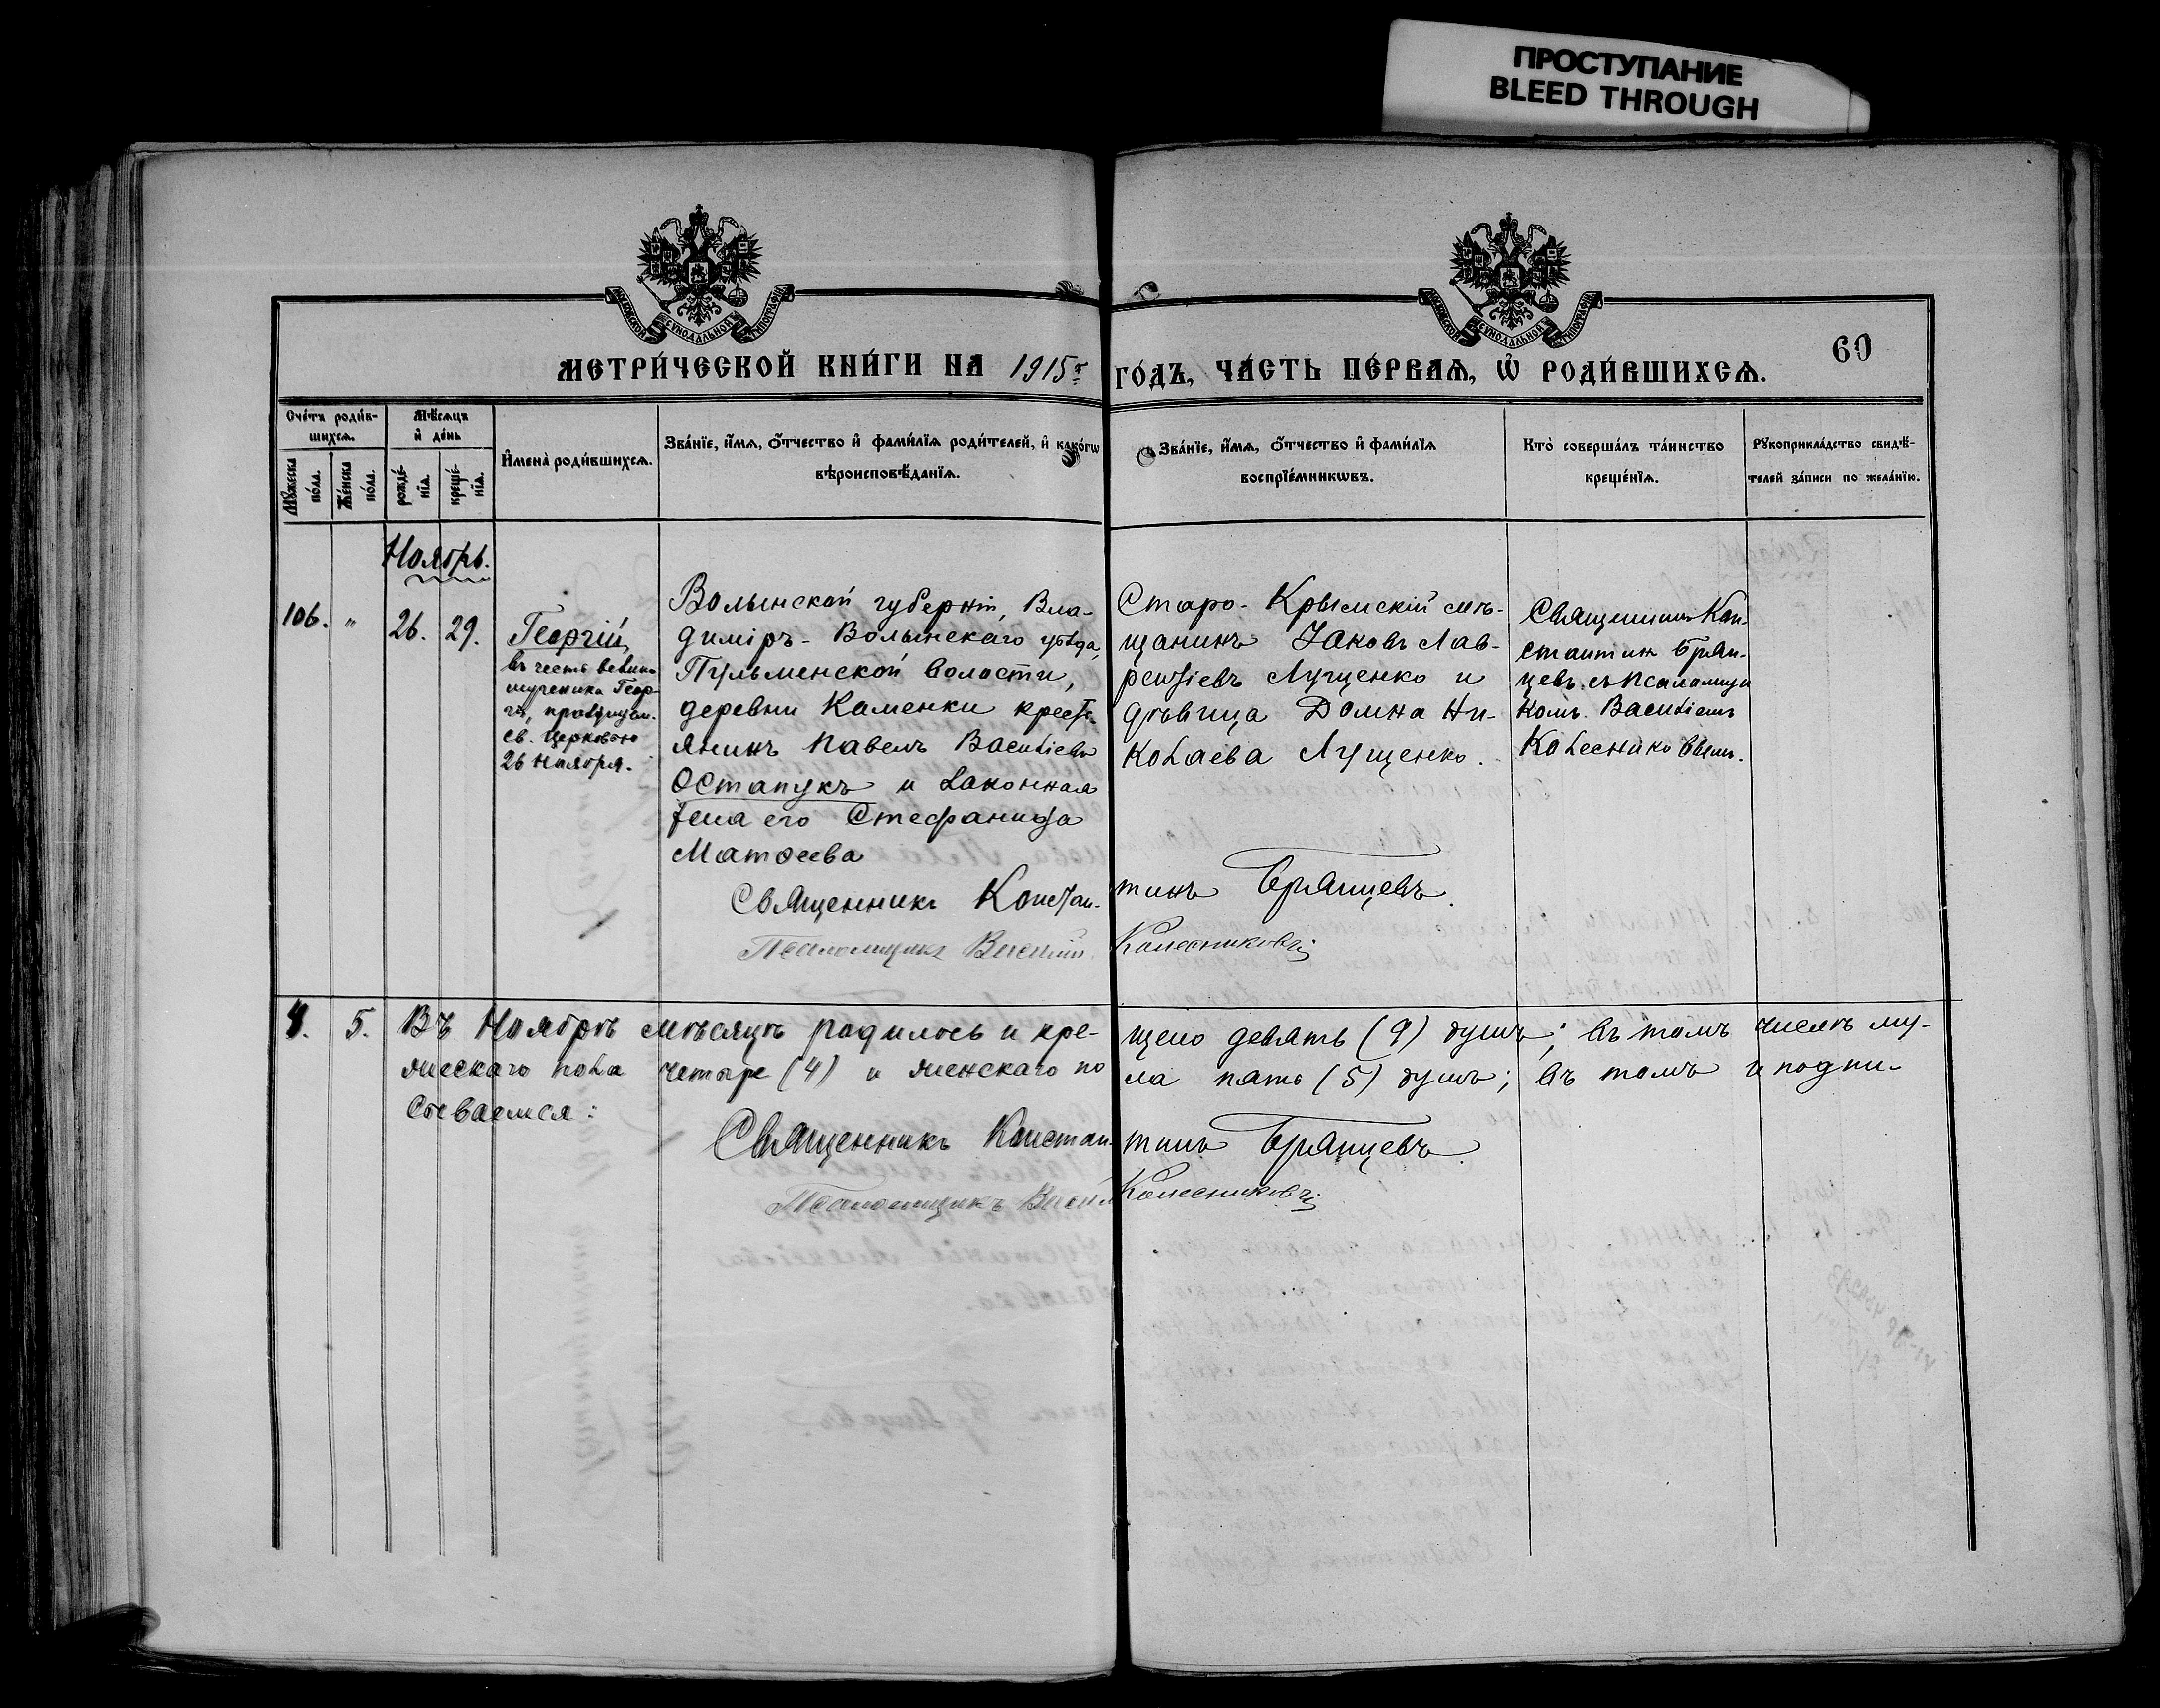 ПРОСТУПАНИЕ
BLEED THROUGH
МОСКОВСКОЙ СѴНОДАЛЬНОЙ ТИПОГРАФІИ
МОСКОВСКОЙ СѴНОДАЛЬНОЙ ТИПОГРАФІИ
60
МЕТРИ́ЧЕСКОЙ КНИ́ГИ НА 1915 г.
ГО́ДЪ, ЧА́СТЬ ПЕ́РВАѦ, Ѡ҆ РОДИ́ВШИХСѦ.
Сче́тъ роди́в-
шихсѧ.
Мѣ́сѧцъ
и҆ де́нь
Мꙋ́жеска
по́ла.
Же́нска
по́ла.
рожде́-
нїѧ.
креще́-
нїѧ.
И҆мена̀ роди́вшихсѧ.
Зва́нїе, и҆́мѧ, о҆́тчество и҆ фами́лїѧ роди́телей, и҆ како́гѡ
вѣроисповѣ́данїѧ.
Зва́нїе, и҆́мѧ, о҆́тчество и҆ фами́лїѧ
воспрїе́мникѡвъ.
Кто̀ соверша́лъ та́инство
креще́нїѧ.
Рꙋкоприкла́дство свидѣ́-
телей за́писи по жела́нїю.
Ноябрь.
106. " 26. 29.
Георгій,
въ честь велико
мученика Геор-
гія, празднуем.
св. Церковью
26 ноября.
Волынской губерніи, Вла-
диміръ-Волынскаго уѣзда,
Пульменской волости,
деревни Каменки кресть-
янинъ Павелъ Васильевъ
Остапукъ и законная
жена его Стефанида
Матѳеева
Старо-Крымскій мѣ-
щанинъ Іаковъ Лав-
рентіевъ Лущенко и
дѣвица Домна Ни-
колаева Лущенко.
Священникъ Кон-
стантинъ Брян-
цевъ съ псаломщи
комъ Василіемъ
Колесниковымъ.
Священникъ Констан-
тинъ Брянцевъ.
Псаломщикъ Василій
Колесниковъ
4. 5. Въ Ноябрѣ мѣсяцѣ родилось и кре-
щено девять (9) душъ; въ томъ числѣ му-
жескаго пола четыре (4) и женскаго по
ла пять (5) душъ; въ томъ и подпи-
сываемся:
Священникъ Констан-
тинъ Брянцевъ.
Псаломщикъ Васил
Колесниковъ